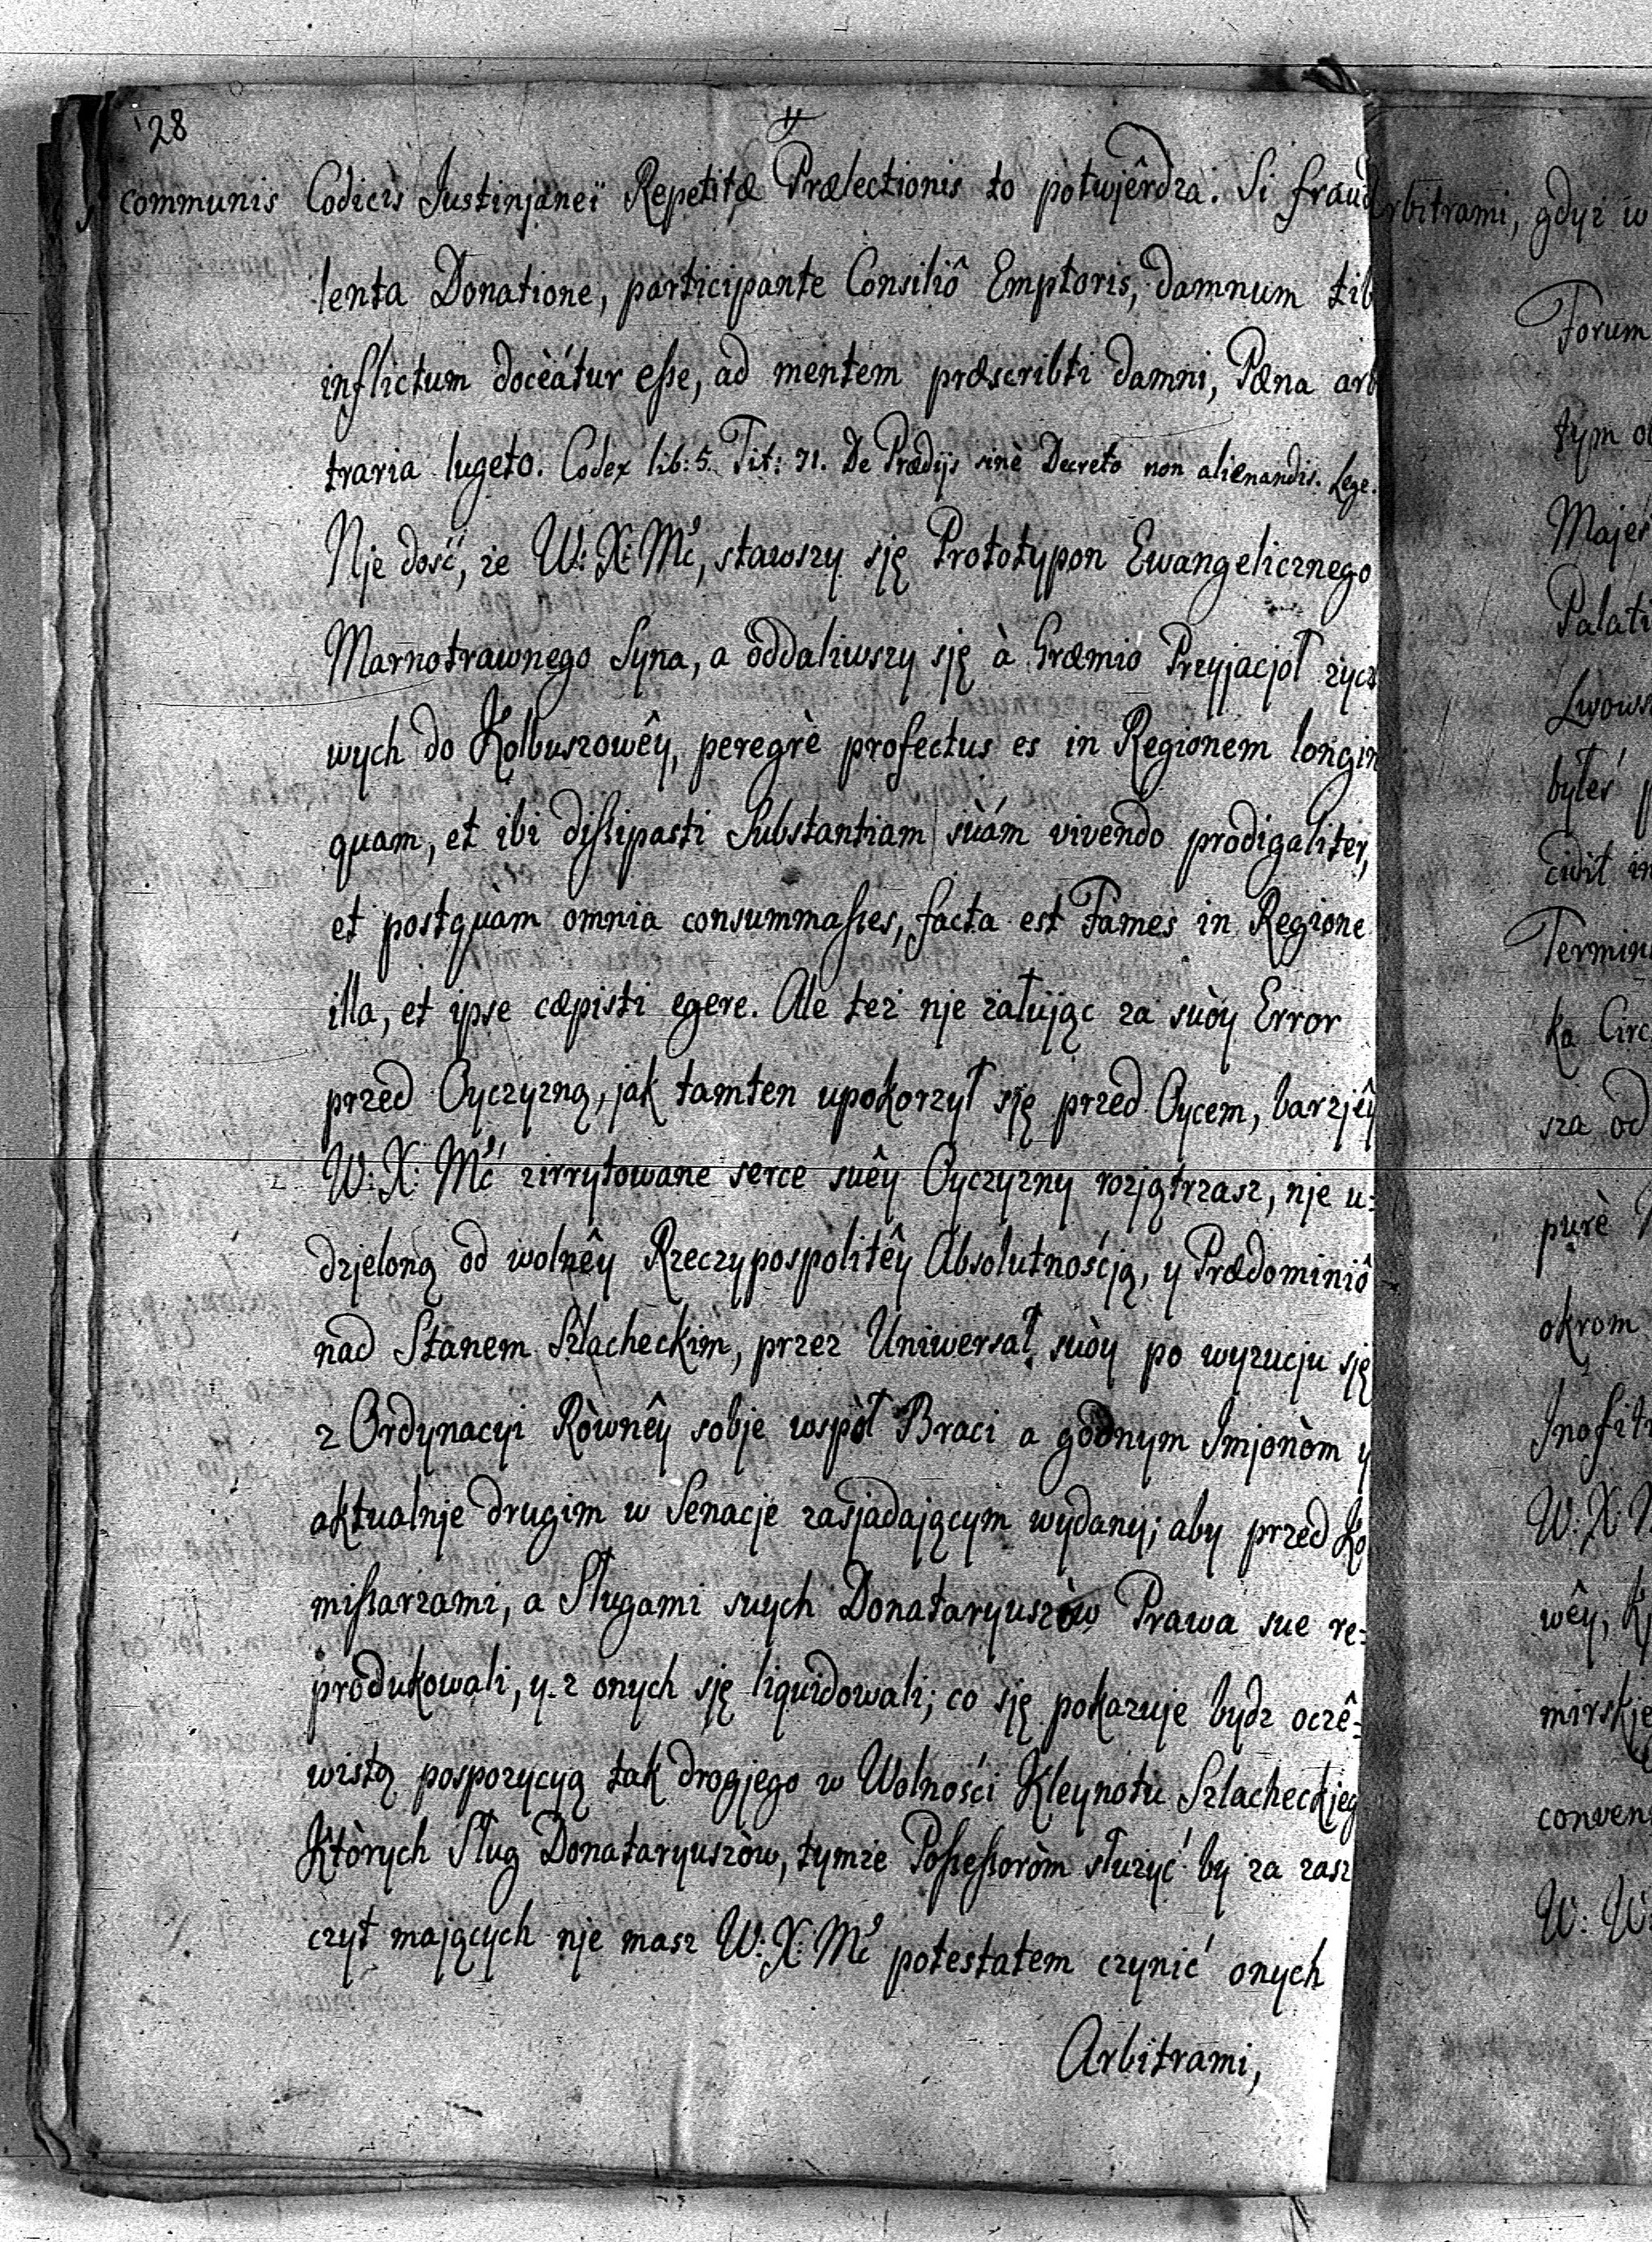 28
communis Codicis Justinjaneï Repetitæ Prælectionis to potwjêrdza. Si fraud
lenta Donatione, participante Consiliô Emptoris, damnum tib
inflictum docèátur eſse, ad mentem præscribti damni, Pæna arb
traria lugeto. Codex lib: 5. Tit: 71. De Prædijs sinè Decreto non alienandis. Lege.
Nje dość, że W: X: Mć, stawszy sję Prototypon Ewangelicznego
Marnotrawnego Syna, a oddaliwszy sję à Græmio Przyjacjół życz
wych do Kolbuszowêy, peregrè profectus es in Regionem longin
quam, et ibi diſsipasti Substantiam suám vivendo prodigaliter,
et postquàm omnia consummaſses, facta est Fames in Regione
illa, et ipse cæpisti egere. Ale też nje żałując za suòy Error
przed Oyczyzną, jak tamten upokorzył sję przed Oycem, barzjêy
W: X: Mć zirrytowane serce suêy Oyczyzny rozjątrzasz, nje u:
dzjeloną od wolnêy Rzeczypospolitêy Absolutnośćją, y Prædominiô
nad Stanem Szlacheckim, przez Uniwersał suòy po wyzucju sję
z Ordynacyi Ròwnêy sobje wspòł Braci a godnym Imjonòm y
aktualnje drugim w Senacje zasjadającym wydany; aby przed Ko
miſsarzami, a Sługami suych Donataryuszòw Prawa sue re:
produkowali, y z onych sję liquidowali; co sję pokazuje bydz oczê:
wistą pospozycyą tak drogjego w Wolności Kleynotu Szlacheckjeg
Ktòrych Sług Donataryuszòw, tymże Poſseſsoròm służyć by za zasz
czyt mających nje masz W: X: Mć potestatem czynić onych
Arbitrami,
rbitrami, gdyż w
Forum
tym
Majes
Palati
Lwows
byłeś
Termin
ka Circ
sza od
purè
okrom
W: X:
wêy,
mirskje
conven
W: W